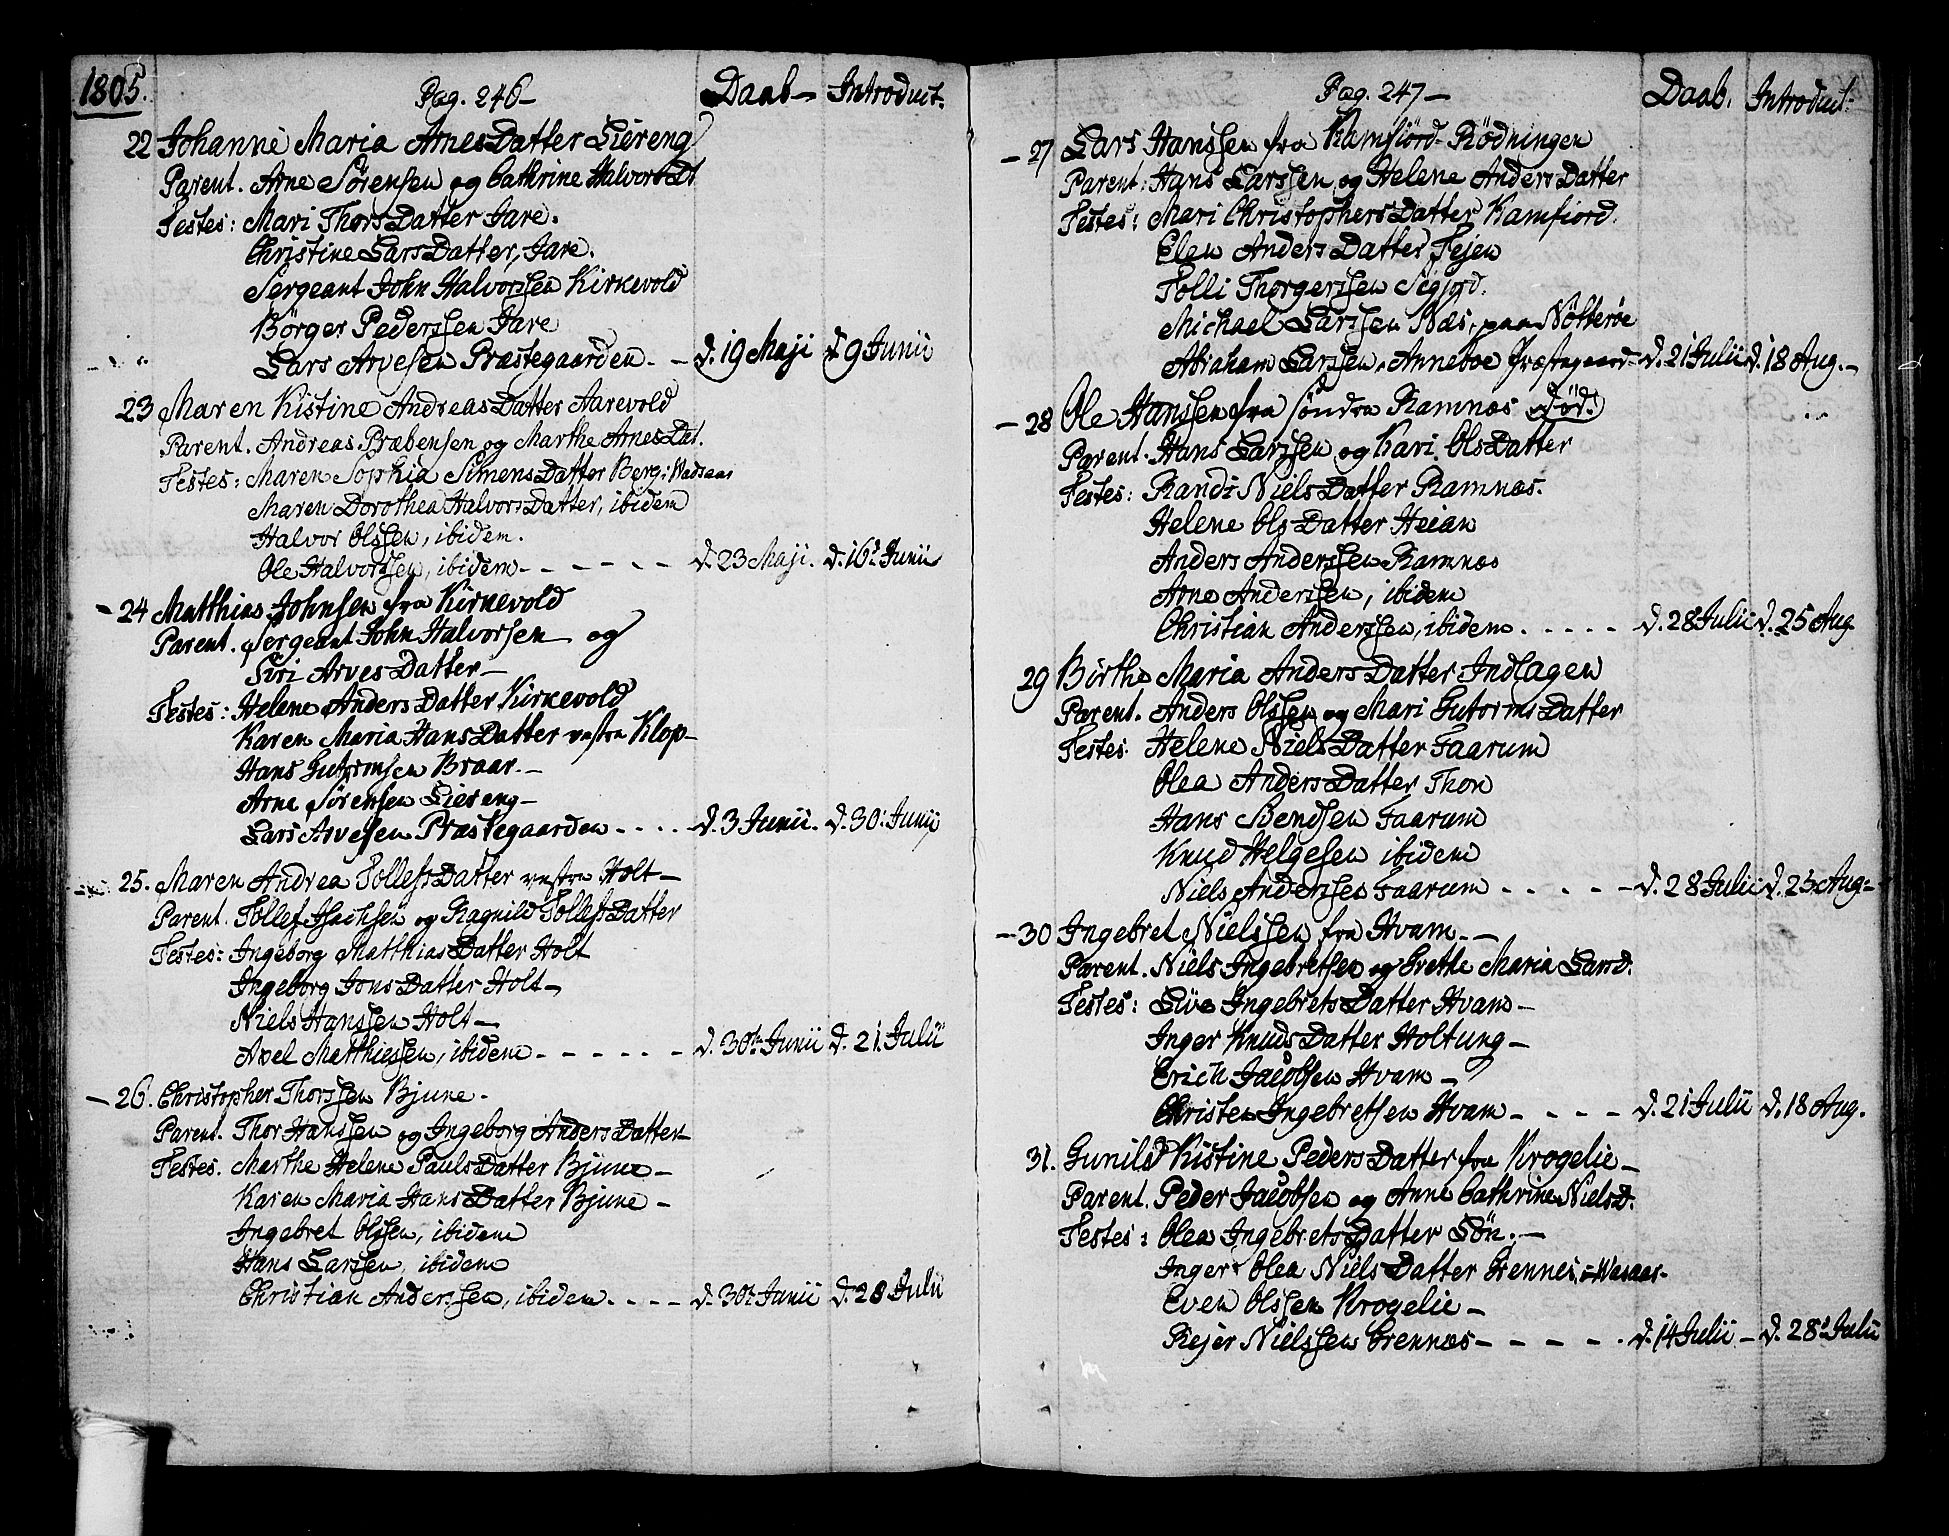 1805.
Pag. 246-
Daab- Introduct.
22 Johanne Maria ArnesDatter Liereng
Parent. Arne Sörensen og Cathrine HalvorsDt
Testes: Mari ThorsDatter Jare.
Christine LarsDatter, Jare.
Sergeant John Halvorssen Kirkevold
Börger Pederssen Jare
Lars Arvesen Præstegaarden. - d. 19 Maji d 9 Junii
23 Maren Kistine AndreasDatter Aarevold
Parent. Andreas Præbensen og Marthe ArnesDat.
Testes: Maren Sophia SimensDatter Berg: Wadsaas
Maren Dorothea HalvorsDatter, ibidem
Halvor Olssen, ibidem.
Ole Halvorssen, ibidem - - - - - - d. 23 Maji. d. 16d Junii
- 24 Matthias Johnsen fra Kirkevold
Parent. Sergeant John Halvorsen og
Siri ArvesDatter -
Testes: Helene AndersDatter Kirkevold
Karen Maria HansDatter vestre Klop-
Hans Gutormsen Braar. -
Arne Sörensen Liereng -
Lars Arvesen Præstegaarden . . . . d. 3 Junii. d. 30. Junii
25. Maren Andrea TollefsDatter vestre Holt -
Parent. Tollef Isachsen og Ragnild TollefsDatter
Testes: Ingeborg MatthiasDatter Holt
Ingeborg JonsDatter Holt -
Niels Hanssen Holt -
Axel Matthiessen, ibidem - - - - - - d. 30t Junii d. 21. Julii
- 26. Christopher Thorssen Bjune.
Parent. Thor Hanssen og Ingeborg AndersDatter -
Testes. Marthe Helene PaulsDatter Bjune -
Karen Maria HansDatter Bjune -
Ingebret Olssen, ibidem
Hans Larssen, ibidem
Christian Anderssen, ibidem. - - - d. 30t Junii d. 28 Julii
Pag. 247-
Daab. Introduct.
- 27 Lars Hanssen fra Ramfjord-Rödningen
Parent: Hans Larssen og Helene AndersDatter
Testes: Mari ChristophersDatter Kamfiord.
Elen AndersDatter Fejen
Tolli Thorgerssen
Michael Larssen Næs, paa Nötteröe
Abraham Larssen, Anneboe Præstegaard - d. 21 Julii d. 18 Aug. -
- 28 Ole Hanssen fra söndre Ramnæs död.
Parent. Hans Larssen og Kari OlsDatter
Testes: Randi NielsDatter Ramnæs.
Helene OlsDatter Heian
Anders Anderssen Ramnæs
Arne Anderssen, ibidem
Christian Anderssen, ibidem . - - - - d. 28 Julii d. 25 Aug
29 Birthe Maria AndersDatter Indlagen
Parent. Anders Olssen og Mari GutormsDatter
Testes: Helene NielsDatter Faarum
Olea AndersDatter Thon
Hans Bendsen Faarum
Knud Helgesen ibidem
Niels Andersen Faarum - - - - - d. 28 Julii d. 25 Aug -
- 30 Ingebret Nielssen fra Hvam. -
Parent. Niels Ingebretsen og Grethe Maria Larsd.
Testes: Live IngebretsDatter Hvam -
Inger KnudsDatter Holtung -
Erich Jacobsen Hvam -
Christen Ingebretsen Hvam - - - - d. 21 Julii d. 18 Aug.
31. Gunild Kistine PedersDatter fra Krogelie -
Parent. Peder Jacobsen og Anne Cathrine NielsD.
Testes: Olea IngebretsDatter Lön. -
Inger Olea NielsDatter Grennes,
Even Olssen Krogelie -
Rejer Nielssen Grennæs - - - - - . d. 14 Julii - d. 28d Julii